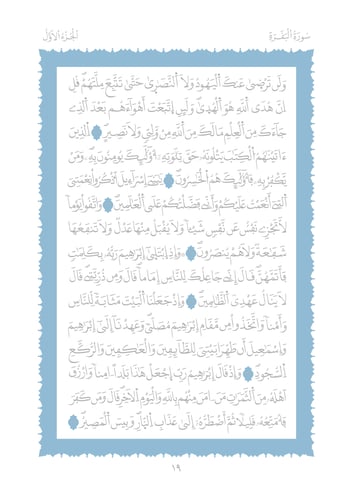 سورة البقرة
الجزء الأول
وَلَن تَرْضَىٰ عَنكَ اَلْيَهُودُ وَلَا اَلنَّصَٰرَىٰ حَتَّىٰ تَتَّبِعَ مِلَّتَهُمْ قُلِ
اِنَّ هُدَى اَللَّهِ هُوَ اَلْهُدَىٰ وَلَئِنِ اِتَّبَعْتَ أَهْوَآءَهُم بَعْدَ اَلذِے
جَآءَكَ مِنَ اَلْعِلْمِ مَا لَكَ مِنَ اَللَّهِ مِنْ وَّلِيّٖ وَلَا نَصِيرٍ اِلذِينَ
ءَاتَيْنَٰهُمُ اُلْكِتَٰبَ يَتْلُونَهُۥ حَقَّ تِلَٰوَتِهِۦٓ أُوْلَٰٓئِكَ يُومِنُونَ بِهِۦ وَمَنْ
يَّكْفُرْ بِهِۦ فَأُوْلَٰٓئِكَ هُمُ اُلْخَٰسِرُونَ يَٰبَنِےٓ إِسْرَآءِيلَ اَذْكُرُواْ نِعْمَتِيَ
اَلتِےٓ أَنْعَمْتُ عَلَيْكُمْ وَأَنِّے فَضَّلْتُكُمْ عَلَى اَلْعَٰلَمِينَ وَاتَّقُواْ يَوْماً
لَّا تَجْزِے نَفْسٌ عَن نَّفْسٖ شَيْـٔاً وَلَا يُقْبَلُ مِنْهَا عَدْلٌ وَلَا تَنفَعُهَا
شَفَٰعَةٌ وَلَا هُمْ يُنصَرُونَ وَإِذِ اِبْتَلَىٰٓ إِبْرَٰهِيمَ رَبُّهُۥ بِكَلِمَٰتٖ
فَأَتَمَّهُنَّ قَالَ إِنِّے جَاعِلُكَ لِلنَّاسِ إِمَاماً قَالَ وَمِن ذُرِّيَّتِے قَالَ
لَا يَنَالُ عَهْدِيَ اَلظَّٰلِمِينَ وَإِذْ جَعَلْنَا اَلْبَيْتَ مَثَابَةً لِّلنَّاسِ
وَأَمْناً وَاتَّخَذُواْ مِن مَّقَامِ إِبْرَٰهِيمَ مُصَلّيٗ وَعَهِدْنَآ إِلَىٰٓ إِبْرَٰهِيمَ
وَإِسْمَٰعِيلَ أَن طَهِّرَا بَيْتِيَ لِلطَّآئِفِينَ وَالْعَٰكِفِينَ وَالرُّكَّعِ
اِلسُّجُودِ وَإِذْ قَالَ إِبْرَٰهِيمُ رَبِّ اِجْعَلْ هَٰذَا بَلَداً اٰمِناً وَارْزُقَ
اَهْلَهُۥ مِنَ اَلثَّمَرَٰتِ مَنَ اٰمَنَ مِنْهُم بِاللَّهِ وَالْيَوْمِ اِلَاخِرِ قَالَ وَمَن كَفَرَ
فَأُمَتِّعُهُۥ قَلِيلاً ثُمَّ أَضْطَرُّهُۥٓ إِلَىٰ عَذَابِ اِلنّارِ وَبِيسَ اَلْمَصِيرُ
١٩